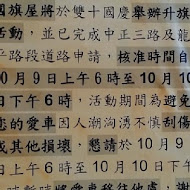 國旗屋將於雙十國慶舉辦升旗
活動，並已完成中正三路及龍
平路段道路申請，核准時間自
10月9日上午6時至10月10
日下午6時，活動期間為避免
您的愛車因人潮洶湧不慎刮傷
或其他損壞，懇請於10月9日
下午6時
暫時將愛車移往他處